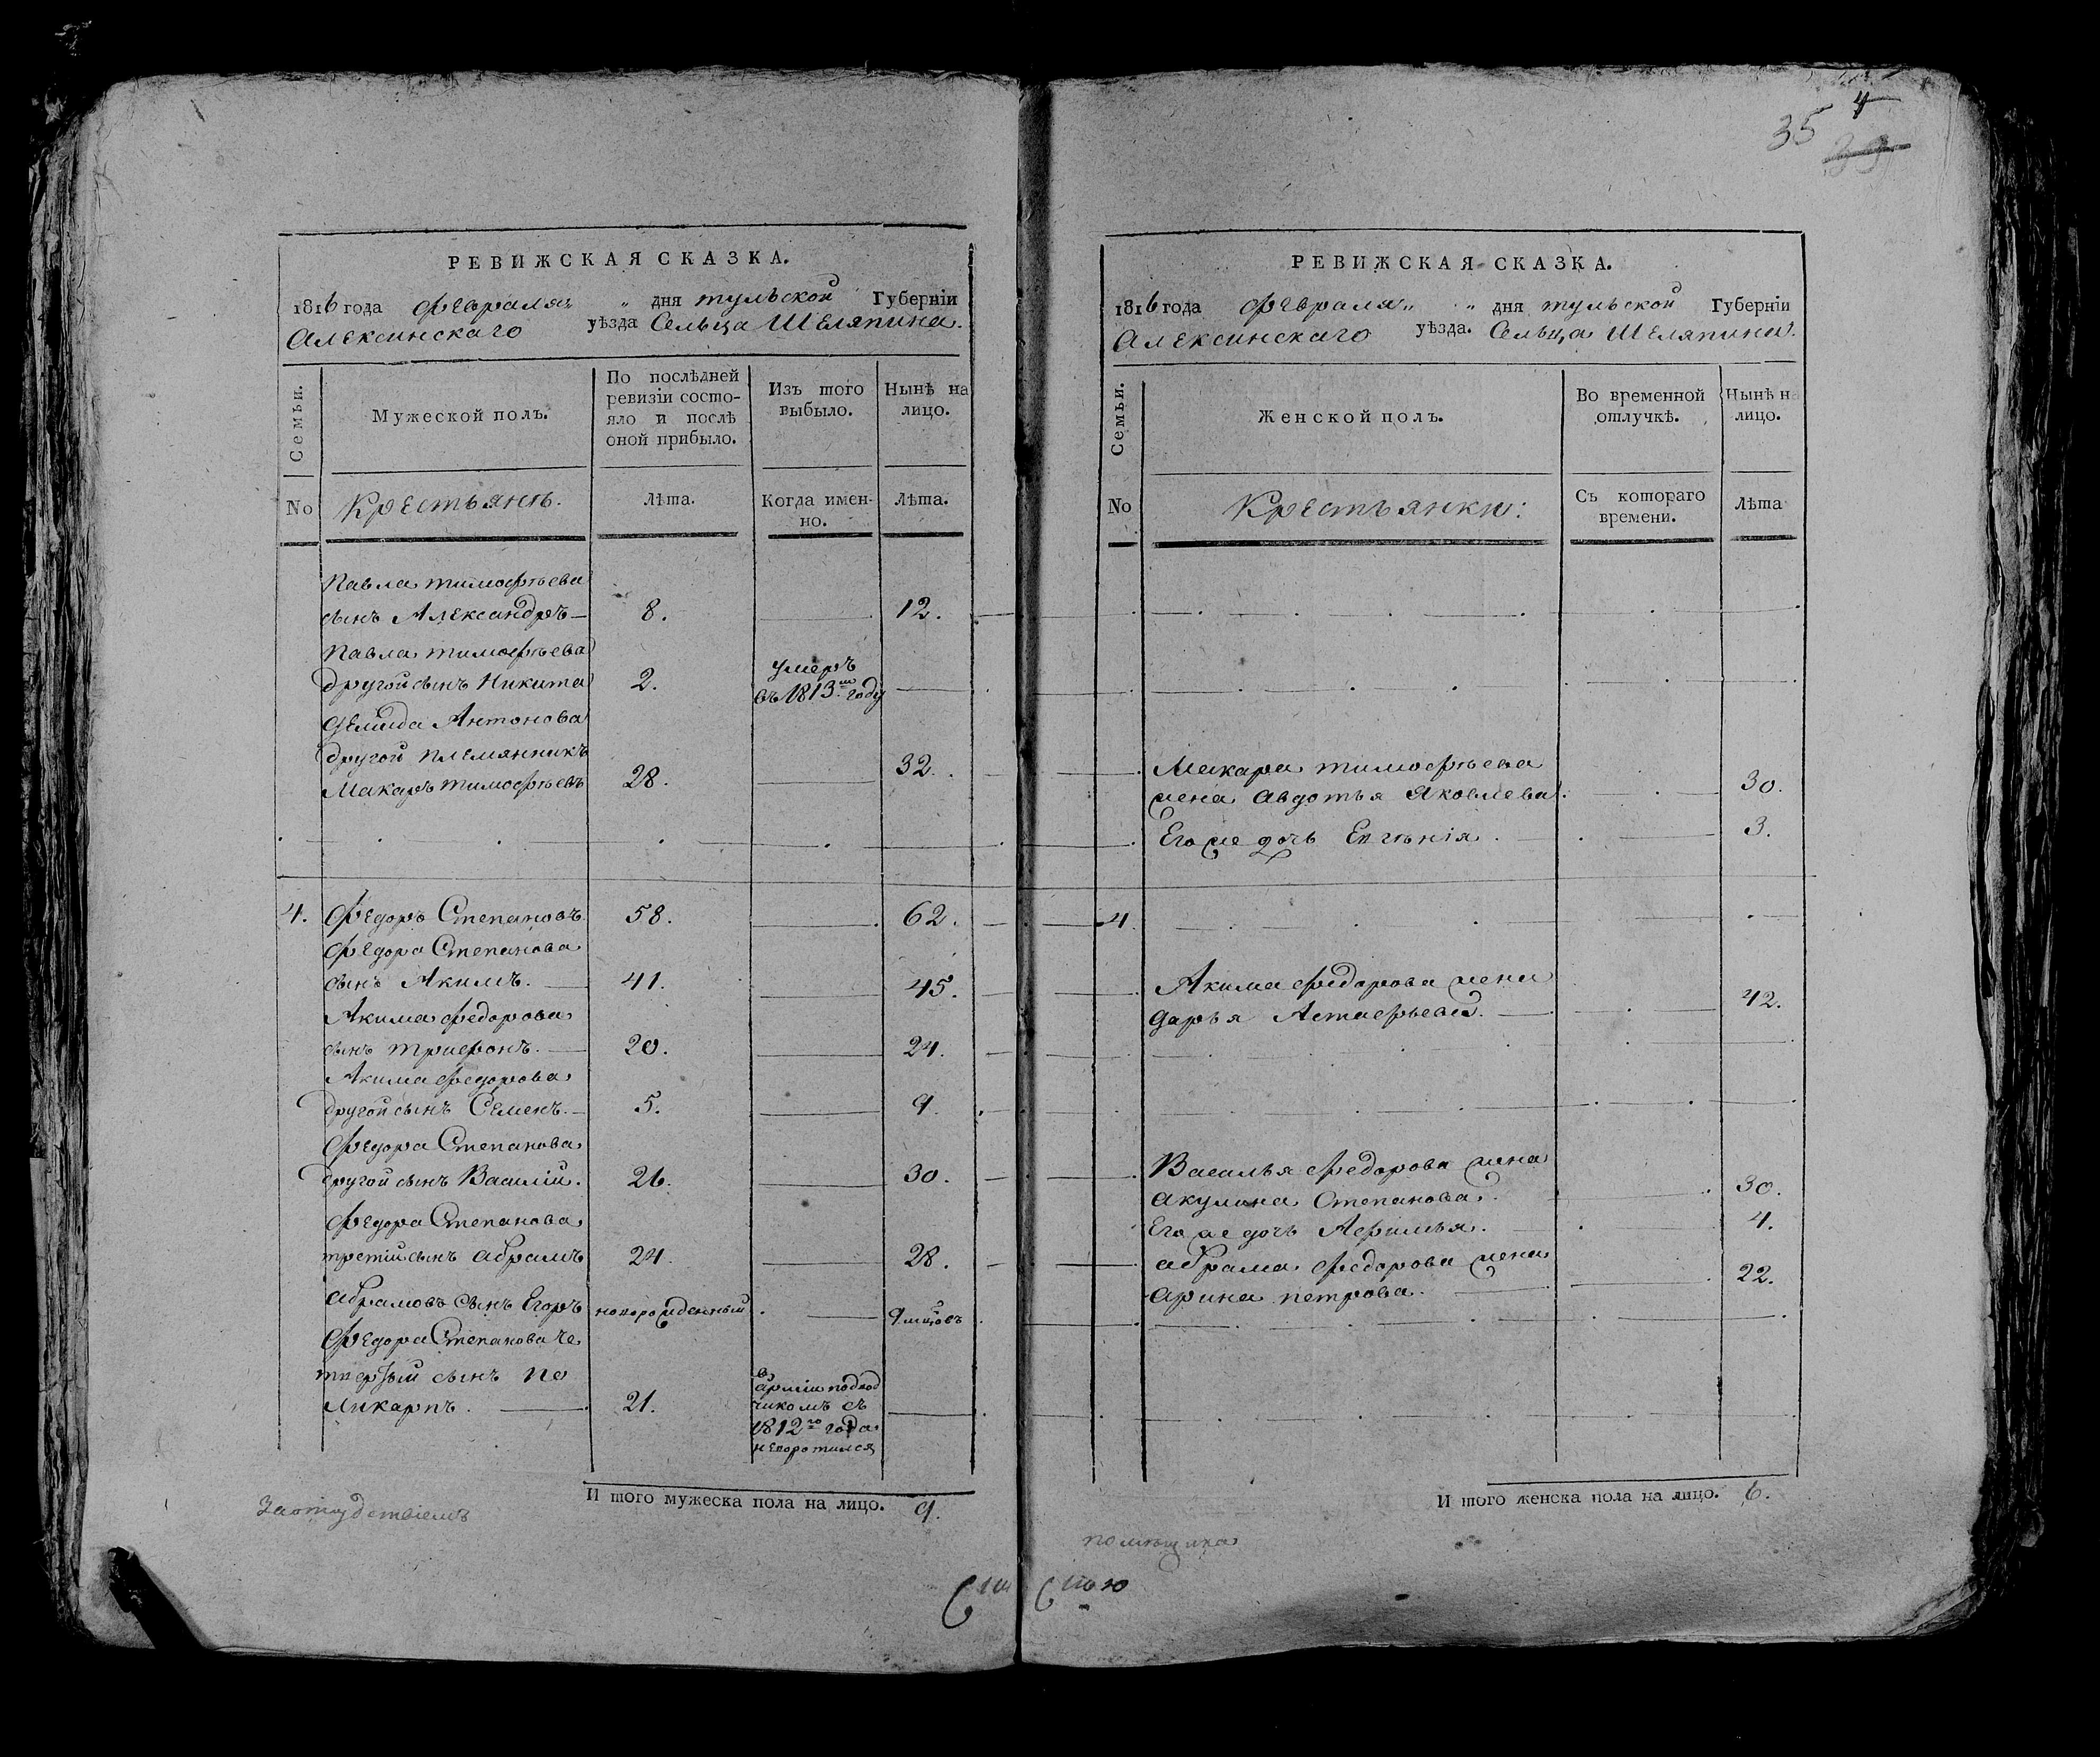 4
35
39
РЕВИЖСКАЯ СКАЗКА.
1816 года февраля „ дня тульской Губерніи
Алексинскаго уѣзда Сельца Шеляпина.
Семьи.
Мужеской полъ.
По послѣдней
ревизіи состо-
яло и послѣ
оной прибыло.
Изъ того
выбыло.
Нынѣ на
лицо.
No
Крестьянъ.
Лѣта.
Когда имен-
но.
Лѣта.
Павла тимофѣева
сынъ Александръ 8. 12.
Павла тимофѣева
другой сынъ Никита 2. умеръ
въ 1813м году
Демида Антонова
другой племянникъ
Макаръ тимофѣевъ 28. 32.
4. Федоръ Степановъ 58. 62.
Федора Степанова
сынъ Акимъ. 41. 45.
Акима федорова
сынъ трифонъ. 20. 24.
Акима федорова
другой сынъ Семенъ. 5. 9
Федора Степанова
другой сынъ Василій. 26. 30.
Федора Степанова
третій сынъ абрамъ 24. 28.
абрамовъ сынъ Егоръ новорожденный 9 мцовъ
Федора Степанова че
твертый сынъ По
ликарпъ. 21. в
арміи подвод
чикомъ съ
1812го года
неворотился
И того мужеска пола на лицо. 9.
За отсудствіемъ
РЕВИЖСКАЯ СКАЗКА.
1816 года февраля „ „ дня тульской Губерніи
Алексинскаго уѣзда. Сельца Шеляпина.
Семьи.
Женской полъ.
Во временной
отлучкѣ.
Нынѣ на
лицо.
No
Крестьянки:
Съ котораго
времени.
Лѣта
Макара тимофѣева
жена авдотья Яковлева. 30.
Его же дочь Евгѣнія. 3.
4
Акима федорова жена
дарья Астафьева. 42.
Василья федорова жена
акулина Степанова. 30.
Его же дочь Афимья. 4.
абрама федорова жена
арина петрова. 22.
И того женска пола на лицо. 6.
помѣщика